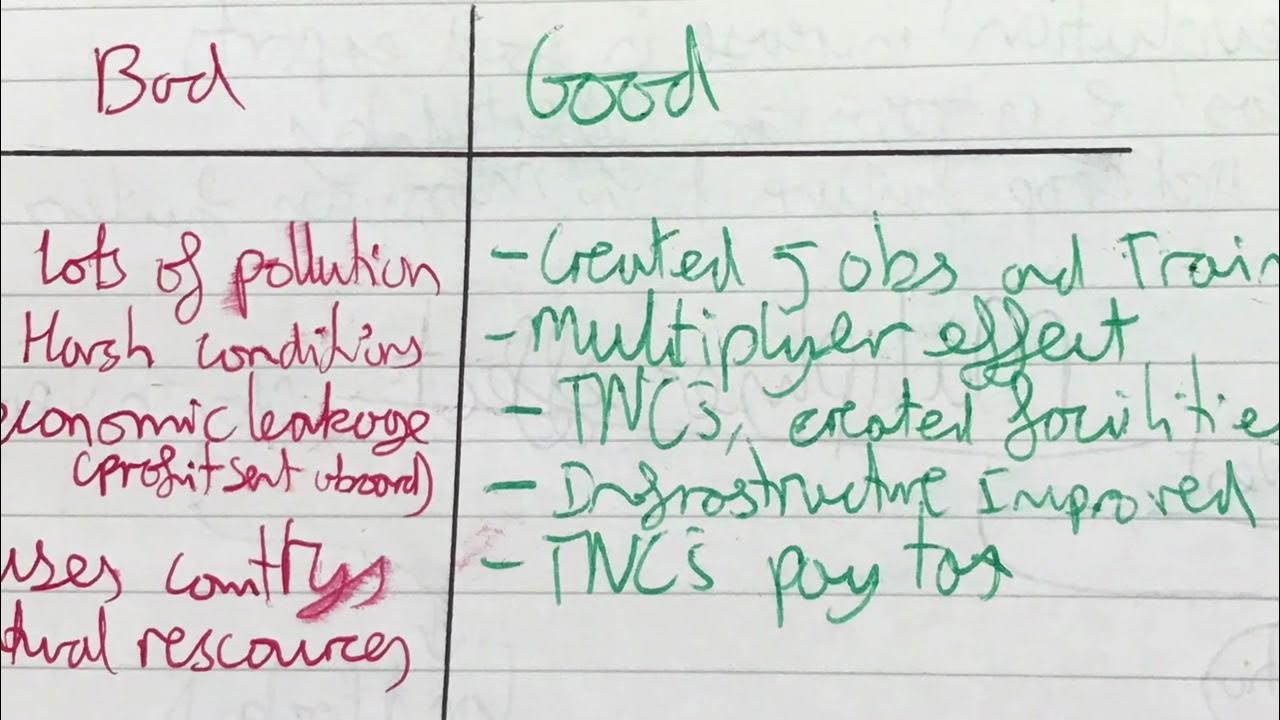 Bad
Good
Lots of pollution
Harsh conditions
economic leakage
(profit sent aboard)
uses country's
tural rescources
- Created Jobs and Train
- Multiplyer effect
- TNCs, created facilities
- Infrastructure Improved
- TNCs pay tax